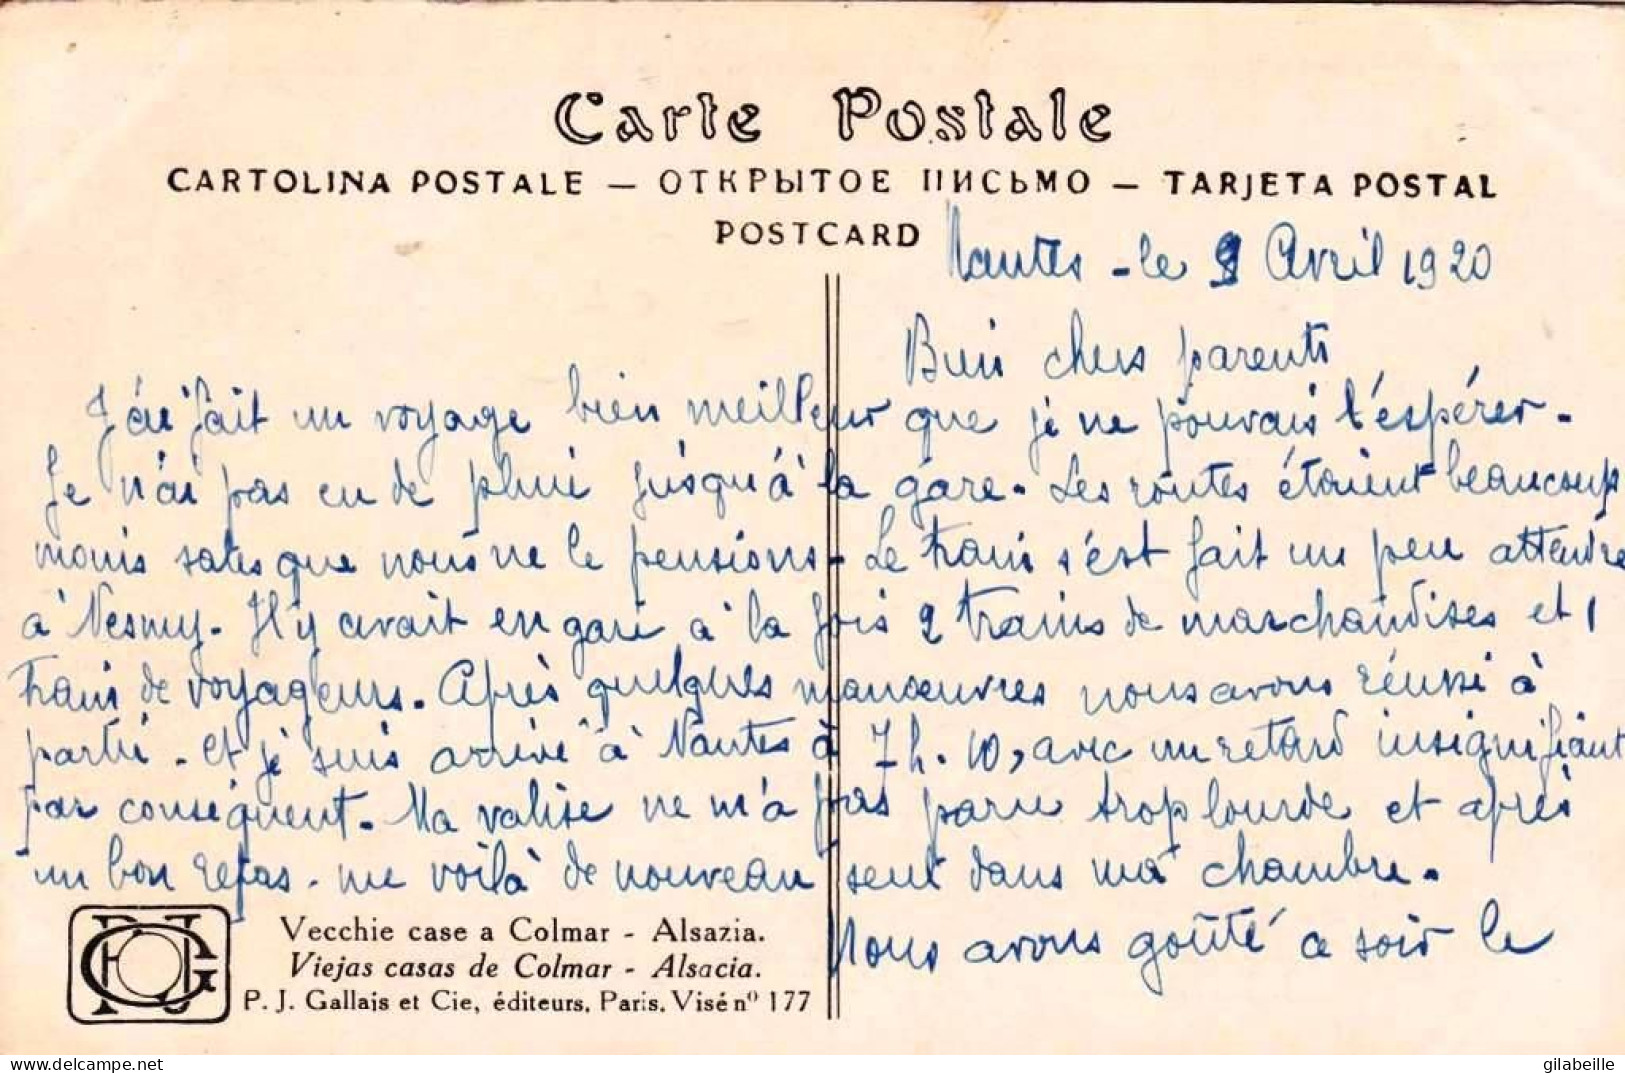 Carte Postale
CARTOLINA POSTALE — ОТКРЫТОЕ ПИСЬМО — TARJETA POSTAL
POSTCARD
Nantes - le 9 Avril 1920
Bien chers parents
J'ai fait un voyage bien meilleur que je ne pouvais l'espérer.
Je n'ai pas eu de pluie jusqu'à la gare. Les routes étaient beaucoup
moins sales que nous ne le pensions. Le train s'est fait un peu attendre
à Nesmy. Il y avait en gare à la fois 2 trains de marchandises et 1
train de voyageurs. Après quelques manœuvres nous avons réussi à
partir. et je suis arrivé à Nantes à 7 h. 10, avec un retard insignifiant
par conséquent. Ma valise ne m'a pas paru trop lourde et après
un bon repas, me voilà de nouveau seul dans ma chambre.
Nous avons goûté ce soir le
Vecchie case a Colmar - Alsazia.
Viejas casas de Colmar - Alsacia.
P. J. Gallais et Cie, éditeurs, Paris. Visé nº 177
https://www.delcampe.net
gilabeille